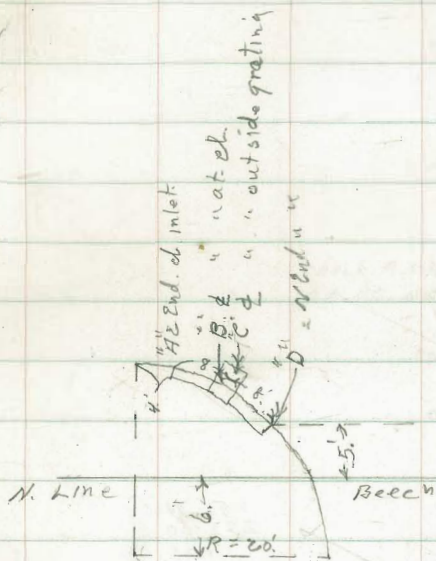 "A" = End. cb inlet.
"B" = ₵ " " at cb.
"C" = ₵ " " outside grating
"D" = N End " "
4'
8'
8'
←5'→
N. Line
Beech
6'
R = 20'